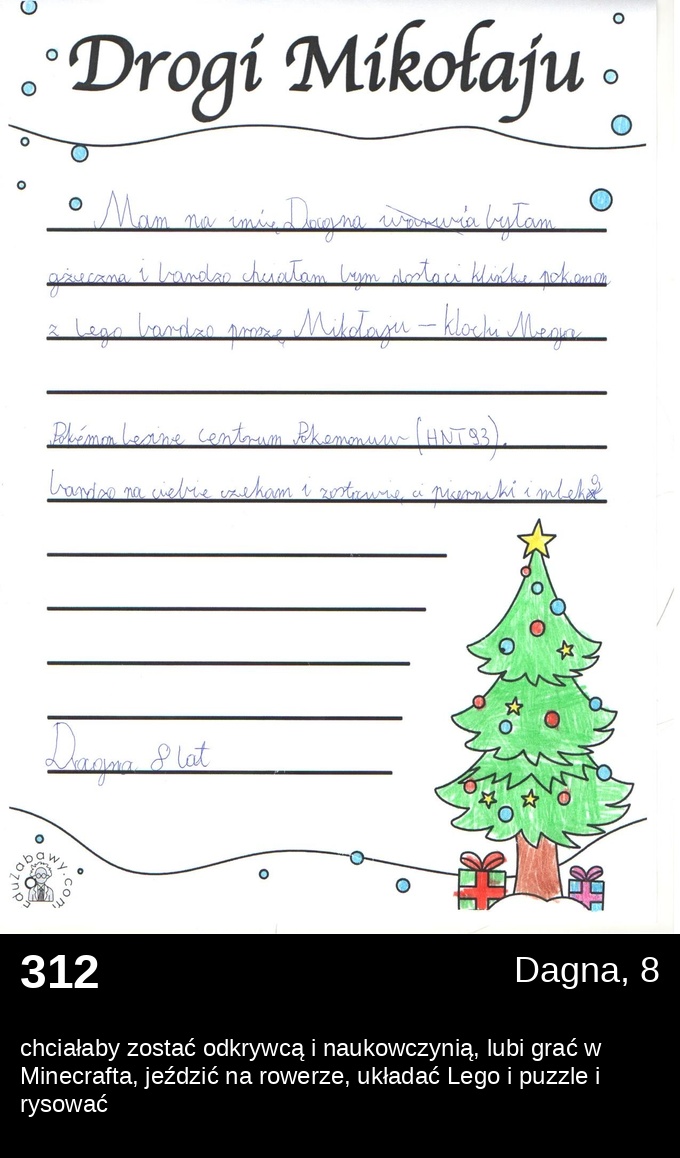 Drogi Mikołaju
Mam na imię Dagna byłam
gżeczna i bardzo chciałam bym dostaci klińke pokemon
z Lego bardzo proszę Mikołaju – klocki Mega
Pokémon Leśne centrum Pokemonuw (HNT93).
bardzo na ciebie czekam i zostawię ci pierniki i mleko
Dagna 8 lat
duzabawy.com
312
Dagna, 8
chciałaby zostać odkrywcą i naukowczynią, lubi grać w
Minecrafta, jeździć na rowerze, układać Lego i puzzle i
rysować